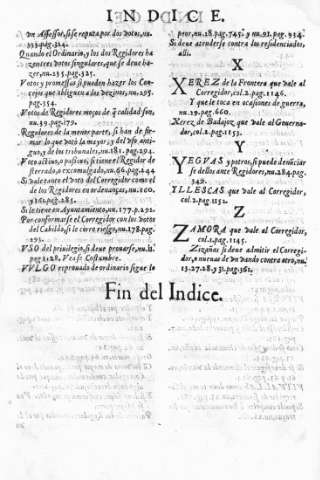 INDICE.
un Assessor, si se reputa por dos votos, nu.
333.pag.314.
Quando el Ordinario, y los dos Regidores ha-
zen tres votos singulares, que se deve ha-
zer, nu.295.pag.325.
Votos y promessas si pueden hazer los Con-
cejos que obliguen a los vezinos, nu.295.
pag.254.
Votos de Regidores moços de q calidad son,
nu.39.pag.179.
Regidores de la menor parte, si han de fir-
mar lo que votò la mayor, y del uso anti-
guo, y de los tribunales, nu.181.pag.294.
Voto activo, o passivo, si tiene el Regidor de-
sterrado, o excomulgado, nu.66.pag.244
Si vale tanto el voto del Corregidor como el
de los Regidores en ordenanças, nu.200.
y 361.pag.283.
Si le tiene en Ayuntamiento, nu.177.p.292.
Por conformarse el Corregidor con votos
del Cabildo, si le corre riesgo, nu.178.pag.
293.
VSO del privilegio, si deve provarse, nu.
pag.128. Vease Costumbre.
VVLGO reprovado de ordinario sigue lo
peor, nu.28.pag.745. y nu.92.pag.934.
Si deve atenderse contra los residenciados,
alli.
X
XEREZ de la Frontera que vale al
Corregidor, col.2.pag.1146.
Y que le toca en ocasiones de guerra,
nu.29.pag.660.
Xerez de Badajoz, que vale al Governa-
dor, col.2.pag.1153.
Y
YEGVAS y potros, si puede denũciar
se dellos ante Regidores, nu.284.pag.
349.
YLLESCAS que vale al Corregidor,
col.2.pag.1152.
Z
ZAMORA que vale al Corregidor,
col.2.pag.1145.
Zizañas si deve admitir el Corregi-
dor, o nuevas de un vando contra otro, nu.
13.27.28.y 31.pag.361.
Fin del Indice.